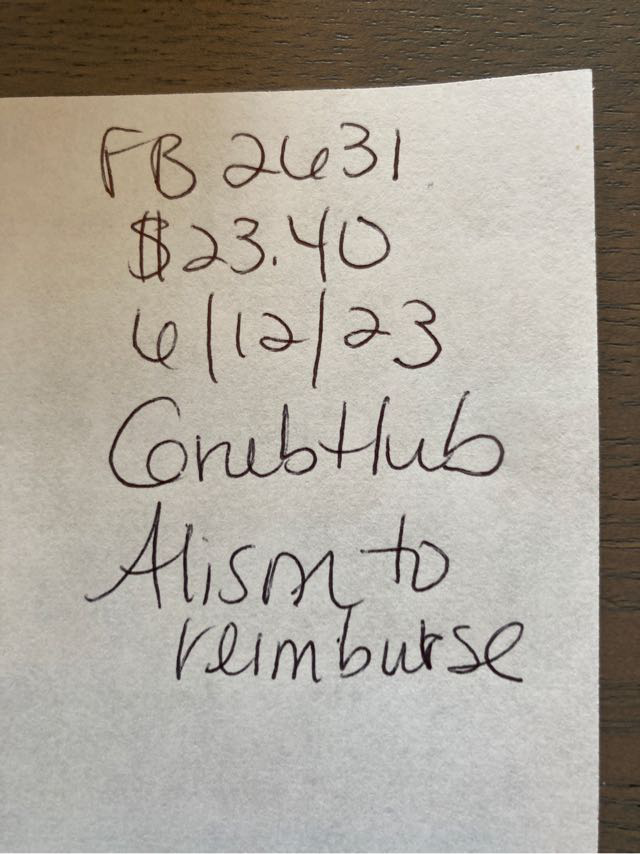 FB 2631
$23.40
6/12/23
GrubHub
Alison to
reimburse